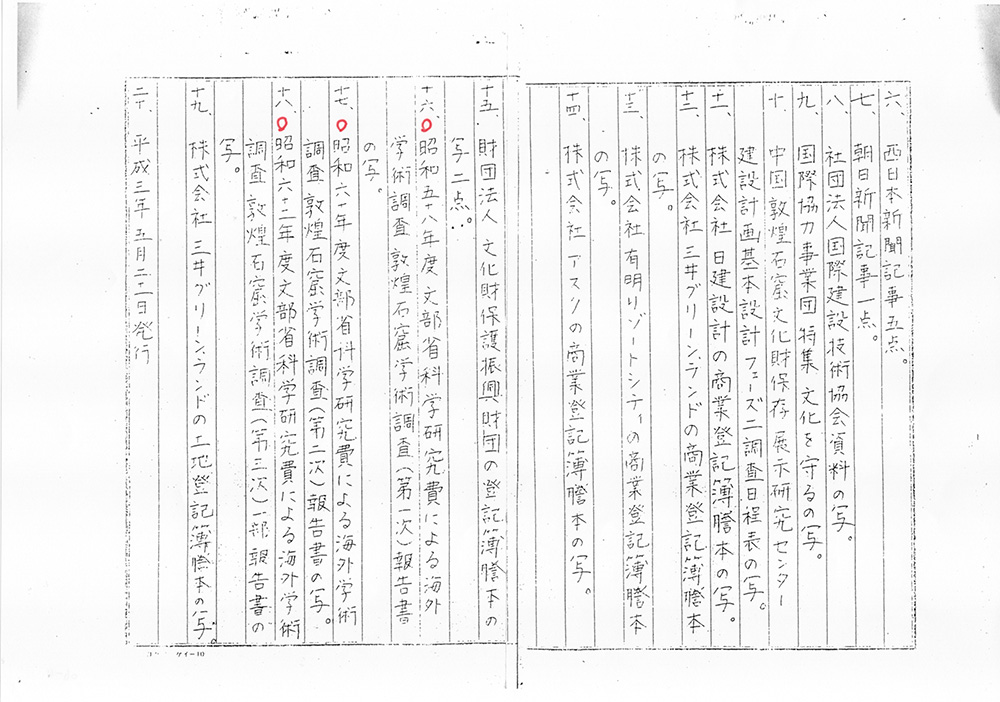 六、西日本新聞記事五点。
七、朝日新聞記事一点。
八、社団法人国際建設技術協会資料の写。
九、国際協力事業団 特集 文化を守るの写。
十、中国敦煌石窟文化財保存 展示研究センター
建設計画基本設計 フェーズ二調査日程表の写。
十一、株式会社 日建設計の商業登記簿謄本の写。
十二、株式会社 三井グリーンランドの商業登記簿謄本
の写。
十三、株式会社 有明リゾートシティの商業登記簿謄本
の写。
十四、株式会社 アスクの商業登記簿謄本の写。
十五、財団法人 文化財保護振興財団の登記簿謄本の
写 二点。
十六、昭和五十八年度文部省科学研究費による海外
学術調査 敦煌石窟学術調査(第一次)報告書
の写。
十七、昭和六十年度文部省科学研究費による海外学術
調査敦煌石窟学術調査(第二次)報告書の写。
十八、昭和六十二年度文部省科学研究費による海外学術
調査 敦煌石窟学術調査(第三次)一部報告書の
写。
十九、株式会社 三井グリーンランドの土地登記簿謄本の写。
二十、平成三年五月二十二日発行
ケイー10